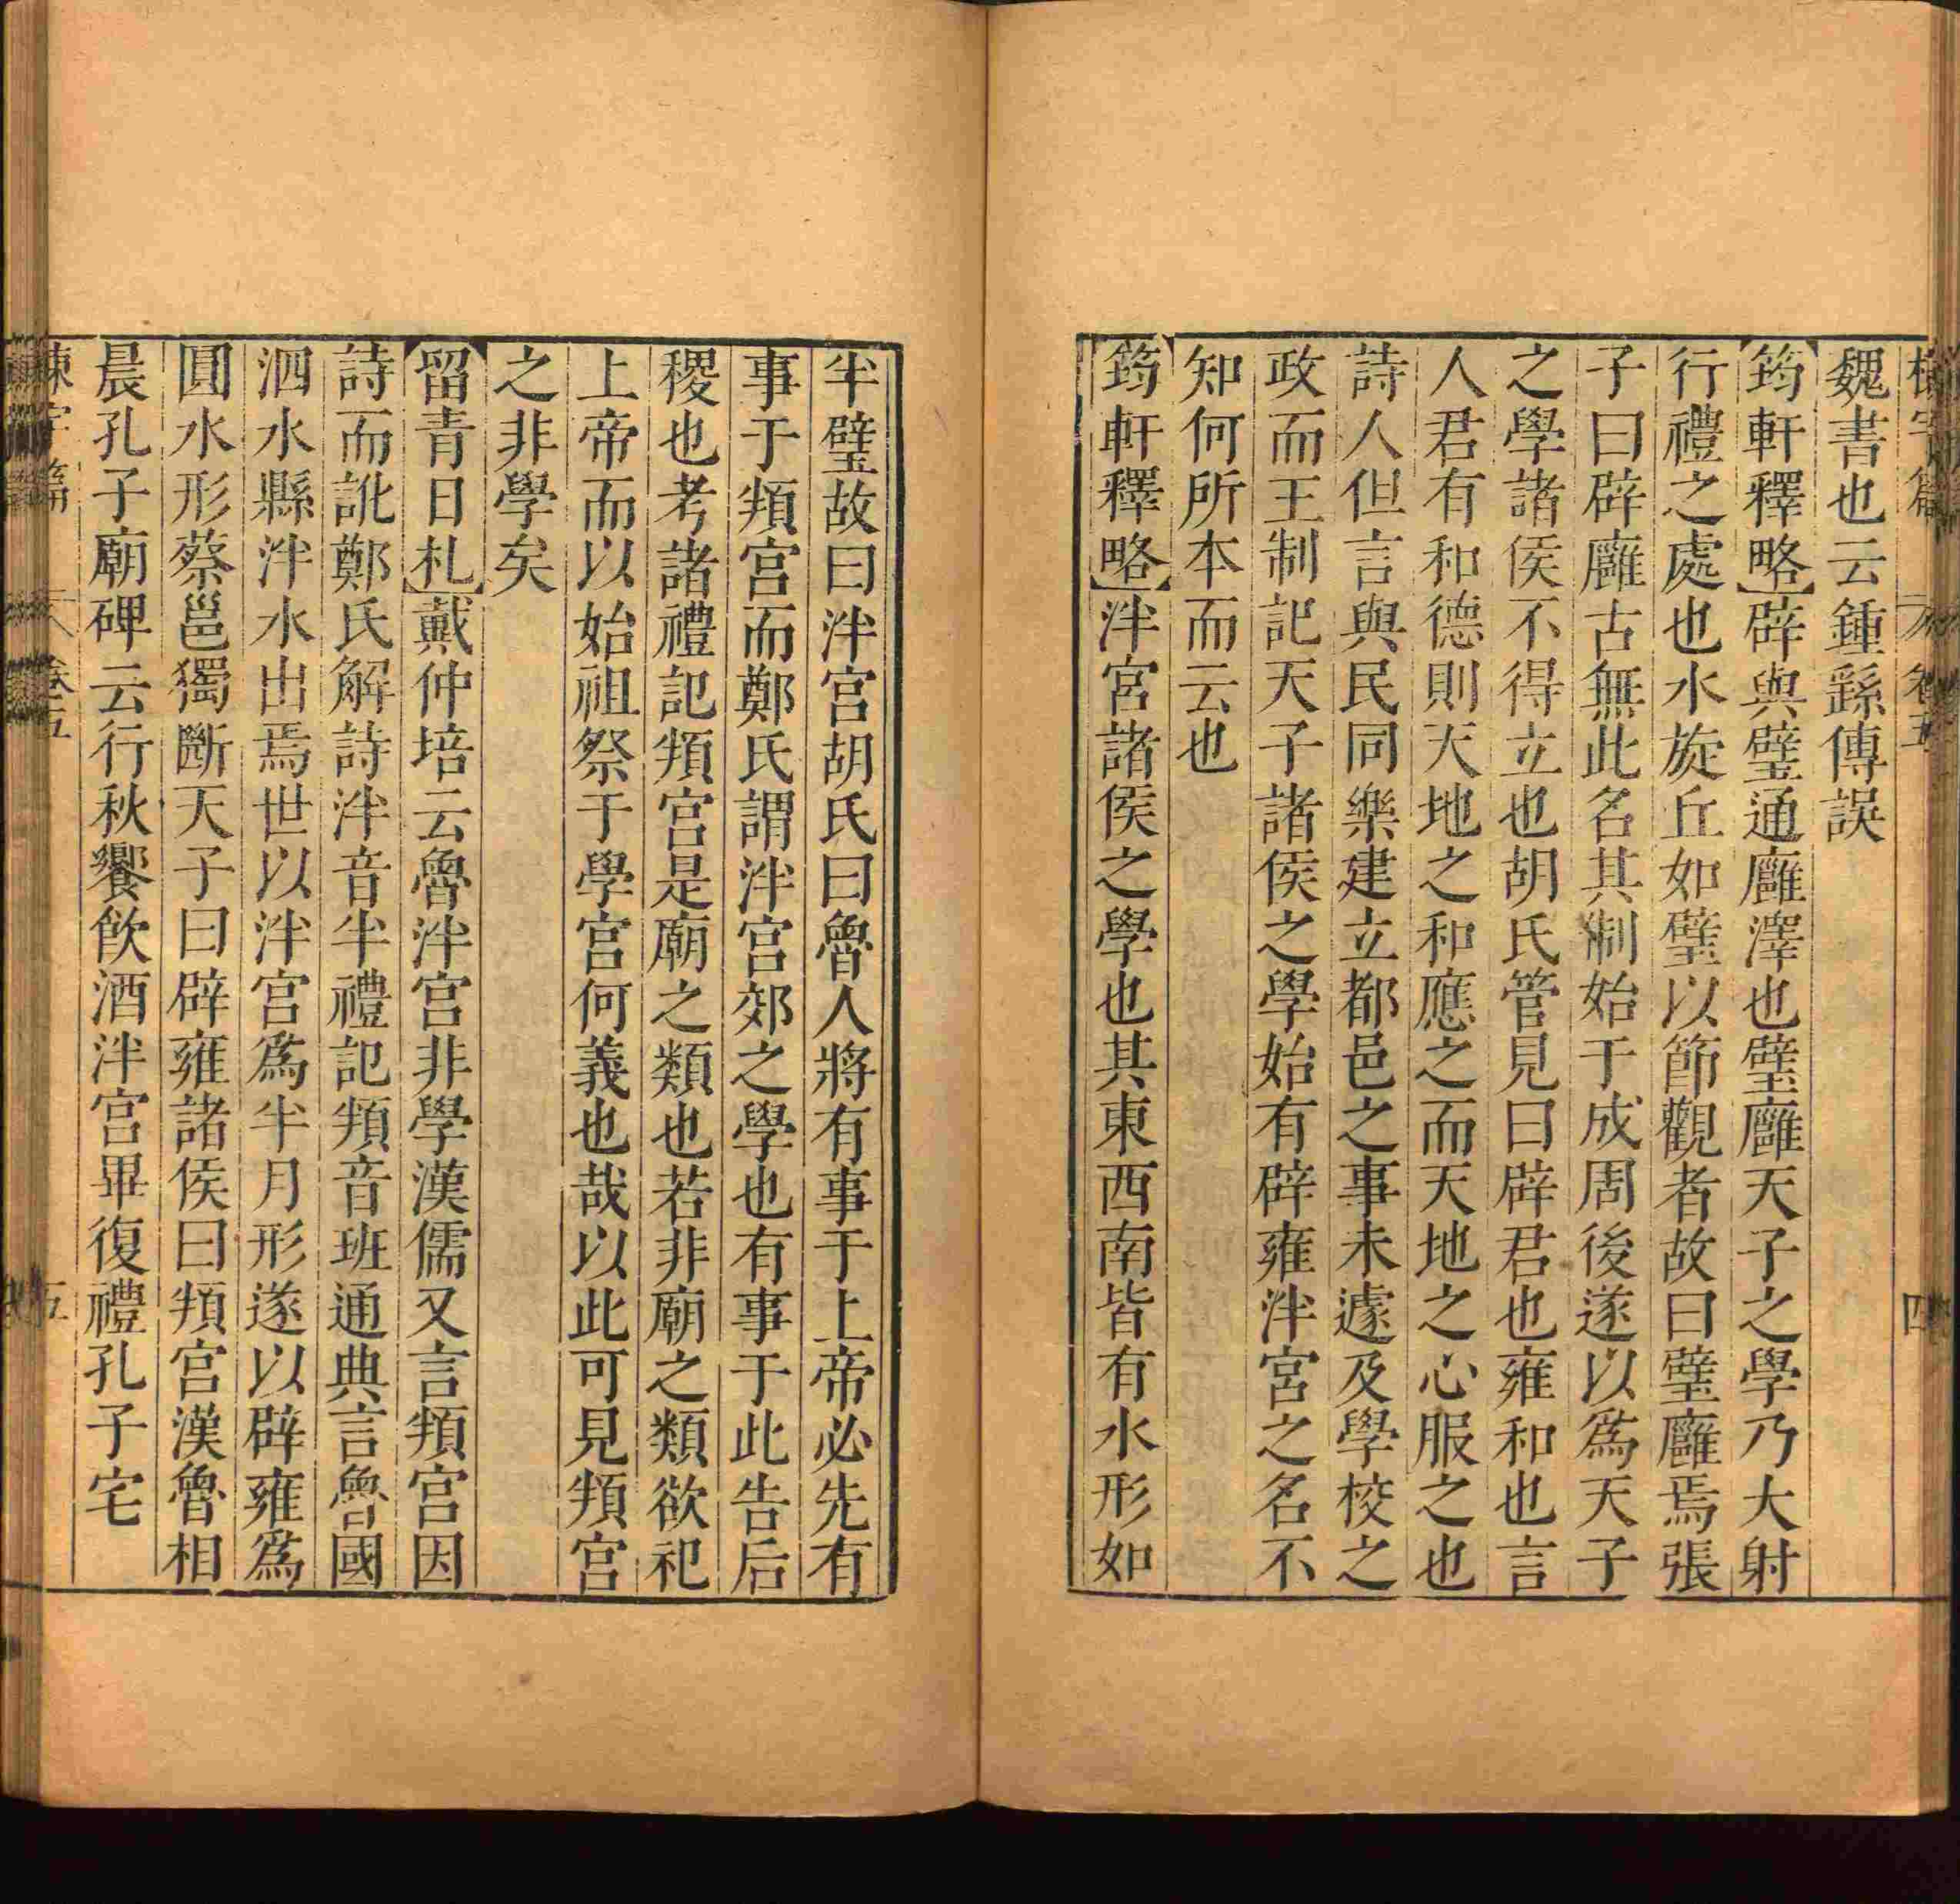 魏書也云鍾繇傳誤
筠軒釋略辟與璧通廱澤也璧廱天子之學乃大射
行禮之處也水旋丘如璧以節觀者故曰璧廱焉張
子曰辟廱古無此名其制始于成周後遂以爲天子
之學諸侯不得立也胡氏管見曰辟君也雍和也言
人君有和德則天地之和應之而天地之心服之也
詩人但言與民同樂建立都邑之事未遽及學校之
政而王制記天子諸侯之學始有辟雍泮宮之名不
知何所本而云也
筠軒釋略泮宮諸侯之學也其東西南皆有水形如
半璧故曰泮宮胡氏曰魯人將有事于上帝必先有
事于頖宮而鄭氏謂泮宮郊之學也有事于此告后
稷也考諸禮記頖宮是廟之類也若非廟之類欲祀
上帝而以始祖祭于學宮何義也哉以此可見頖宮
之非學矣
留青日札戴仲培云魯泮宮非學漢儒又言頖宮因
詩而訛鄭氏解詩泮音半禮記頖音班通典言魯國
泗水縣泮水出焉世以泮宮爲半月形遂以辟雍爲
圓水形蔡邕獨斷天子曰辟雍諸侯曰頖宮漢魯相
晨孔子廟碑云行秋饗飲酒泮宮畢復禮孔子宅